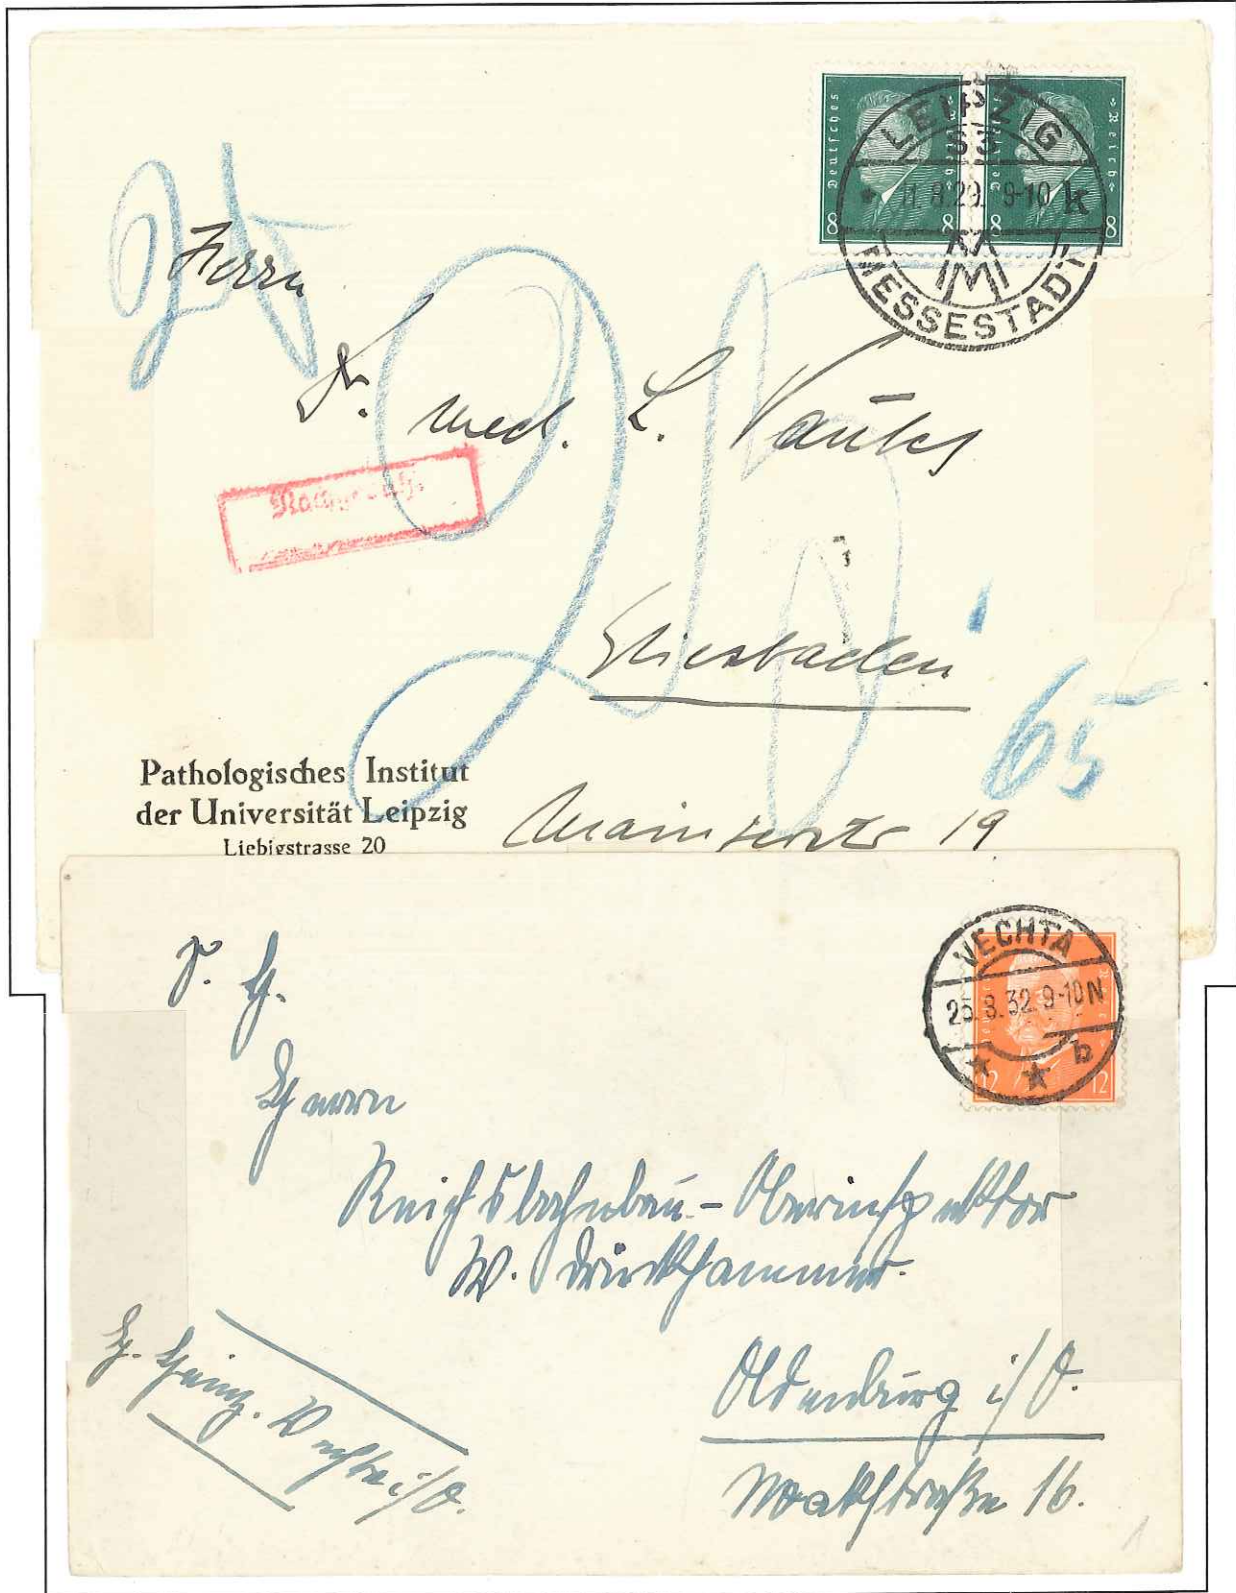 Deutsches Reich
8
8
LEIPZIG
S3
* 11.8.29. 9-10 k
MM
MESSESTADT
25
Herrn
Dr. med. L.
25
Wiesbaden
65
Pathologisches Institut
der Universität Leipzig
Liebigstrasse 20
Mainzerstr 19
VECHTA
25.8.32. 9-10 N
* * b
12
12
S. H.
Herrn
Reichsbahnbau-Oberinspektor
W. Drückhammer.
Oldenburg i/O.
Vechta i/O.
16.